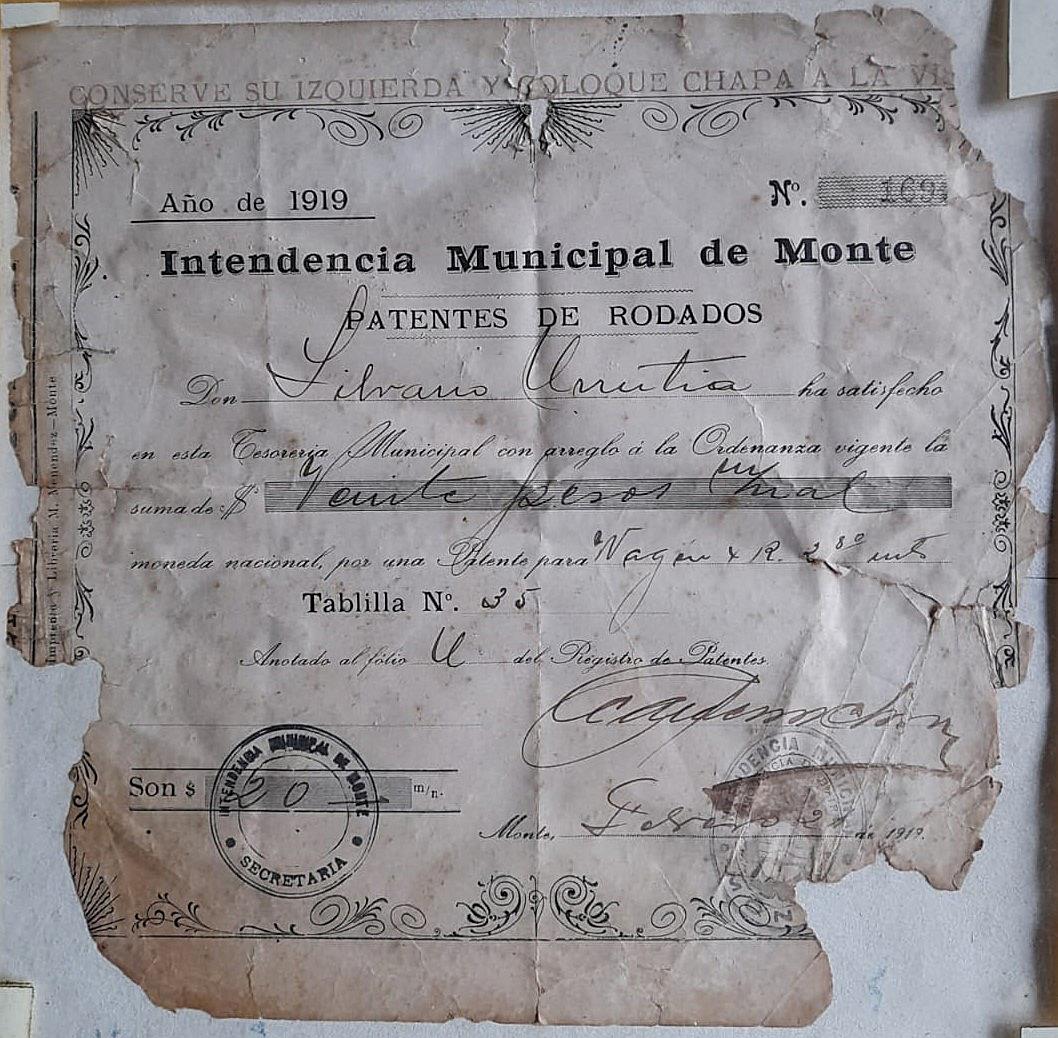 CONSERVE SU IZQUIERDA Y COLOQUE CHAPA A LA
Año de 1919
Nº. 169
Intendencia Municipal de Monte
PATENTES DE RODADOS
Don Silvano Urrutia ha satisfecho
en esta Tesoreria Municipal con arreglo á la Ordenanza vigente la
suma de $ Veinte pesos m/nal
moneda nacional, por una Patente para Wagón 4 R. 2
Tablilla Nº. 35
Anotado al fólio U del Registro de Patentes.
Son $ 20 m/n.
INTENDENCIA MUNICIPAL DE MONTE
SECRETARIA
Monte, Febrero 21 de 1919.
Imprenta y Libreria M. Menendez—Monte